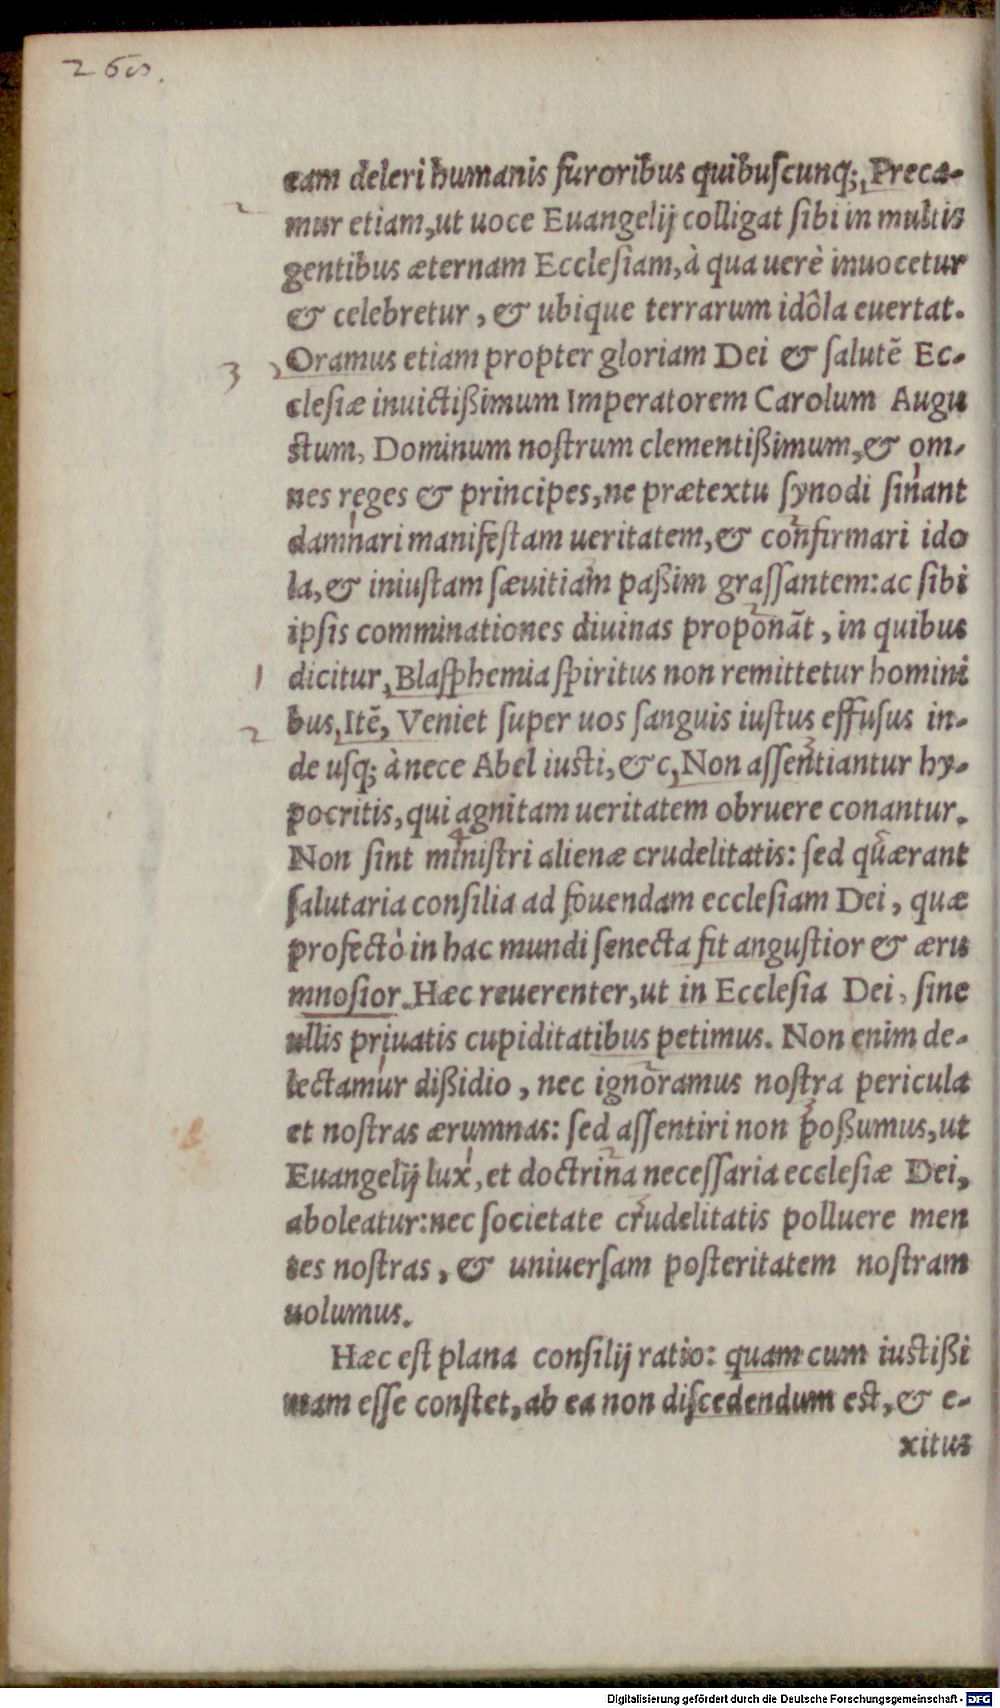 260.
eam deleri humanis furoribus quibuscunq;, Preca-
2
mur etiam, ut uoce Euangelij colligat sibi in multis
gentibus æternam Ecclesiam, à qua uerè inuocetur
& celebretur, & ubique terrarum idôla euertat.
3 Oramus etiam propter gloriam Dei & salutẽ Ec-
clesiæ inuictißimum Imperatorem Carolum Augu
stum, Dominum nostrum clementißimum, & om-
nes reges & principes, ne prætextu synodi sinant
damnari manifestam ueritatem, & confirmari ido
la, & iniustam sæuitiam paßim grassantem: ac sibi
ipsis comminationes diuinas proponãt, in quibus
1 dicitur, Blasphemia spiritus non remittetur homini
2 bus, Itẽ, Veniet super uos sanguis iustus effusus in-
de usq; à nece Abel iusti, &c, Non assentiantur hy-
pocritis, qui agnitam ueritatem obruere conantur.
Non sint ministri alienæ crudelitatis: sed quærant
salutaria consilia ad fouendam ecclesiam Dei, quæ
profectò in hac mundi senecta fit angustior & æru
mnosior. Hæc reuerenter, ut in Ecclesia Dei, sine
ullis priuatis cupiditatibus petimus. Non enim de-
lectamur dißidio, nec ignoramus nostra pericula
et nostras ærumnas: sed assentiri non poßumus, ut
Euangelij lux, et doctrina necessaria ecclesiæ Dei,
aboleatur: nec societate crudelitatis polluere men
tes nostras, & uniuersam posteritatem nostram
uolumus.
Hæc est plana consilij ratio: quam cum iustißi
mam esse constet, ab ea non discedendum est, & e-
xitus
Digitalisierung gefördert durch die Deutsche Forschungsgemeinschaft - DFG